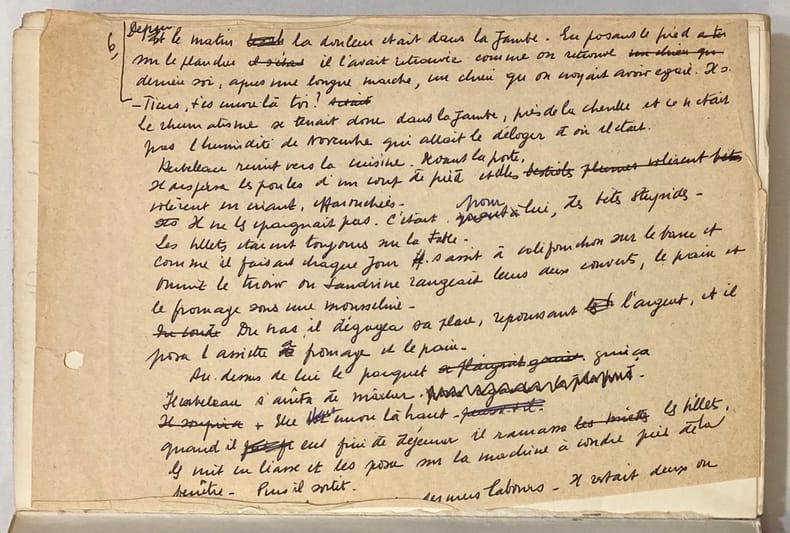 6,
Depuis
le matin la douleur était dans la jambe. En posant le pied
sur le plancher il s'était il l'avait retrouvée comme on retrouve un chien qu
derrière soi, après une longue marche, un chien qu'on croyait avoir égaré.
- Tiens, t'es encore là toi ?
Le rhumatisme se tenait donc dans la jambe, près de la cheville et ce n'était
pas l'humidité de Novembre qui allait le déloger d'où il était.
revint vers la cuisine. Devant la porte,
Il dispersa les poules d'un coup de pied et elles bestioles plumes volèrent bêtes
volèrent en criant, effarouchées.
Il ne les épargnait pas. C'était pour lui, des bêtes stupides -
Les billets étaient toujours sur la table -
Comme il faisait chaque jour il s'assit à califourchon sur le banc et
ouvrit le tiroir où Sandrine rangeait leurs deux couverts, le pain et
le fromage sous une mousseline -
Du bras, il dégagea sa place, repoussant l'argent, et il
posa l'assiette de fromage et le pain -
Au dessus de lui le parquet grinça
s'arrêta de mâcher.
Il soupira + Elle était encore là haut -
quand il eut fini de déjeuner il ramassa les billets,
les mit en liasse et les posa sur la machine à coudre près de la
fenêtre - Puis il sortit.
labours - Il restait deux ou